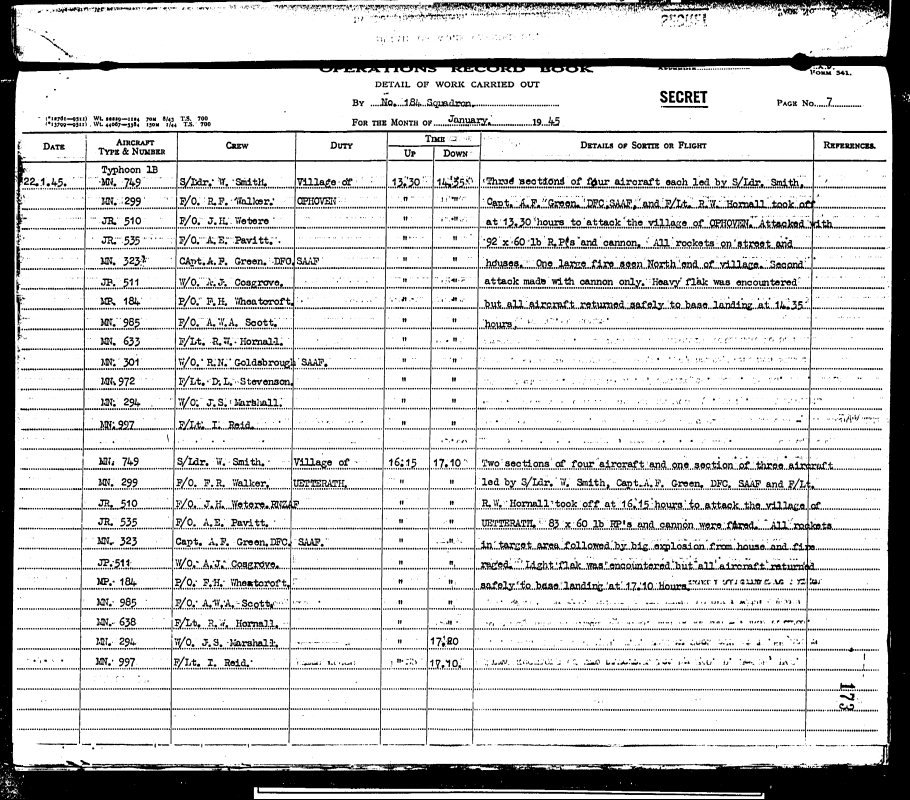 SECRET
OPERATIONS RECORD BOOK
FORM 541.
DETAIL OF WORK CARRIED OUT
By No. 184 Squadron.
SECRET
PAGE No. 7
FOR THE MONTH OF January. 1945
DATE AIRCRAFT TYPE & NUMBER CREW DUTY TIME UP DOWN DETAILS OF SORTIE OR FLIGHT REFERENCES.
Typhoon 1B
22.1.45. MN. 749 S/Ldr. W. Smith. Village of 13.30 14.35 Three sections of four aircraft each led by S/Ldr. Smith,
MN. 299 F/O. R.F. Walker. OPHOVEN " " Capt. A.F. Green. DFC,SAAF, and F/Lt. R.W. Hornall took off
JR. 510 F/O. J.H. Wetere " " at 13.30 hours to attack the village of OPHOVEN. Attacked with
JR. 535 F/O. A.E. Pavitt. " " 92 x 60 lb R.P's and cannon. All rockets on street and
MN. 323 CApt.A.F. Green. DFC,SAAF " " houses. One large fire seen North end of village. Second
JP. 511 W/O. A.J. Cosgrove. " " attack made with cannon only. Heavy flak was encountered
MP. 184 P/O. F.H. Wheatcroft. " " but all aircraft returned safely to base landing at 14.35
MN. 985 F/O. A.W.A. Scott. " " hours.
MN. 633 F/Lt. R.W. Hornall. " "
MN. 301 W/O. R.N. Goldsbrough SAAF. " "
MN. 972 F/Lt. D.L. Stevenson. " "
MN. 294 W/O. J.S. Marshall. " "
MN. 997 F/Lt. I. Reid. " "
MN. 749 S/Ldr. W. Smith. Village of 16.15 17.10 Two sections of four aircraft and one section of three aircraft
MN. 299 F/O. F.R. Walker. UETTERATH. " " led by S/Ldr. W. Smith, Capt.A.F. Green. DFC, SAAF and F/Lt.
JR. 510 F/O. J.H. Wetere.RNZAF " " R.W. Hornall took off at 16.15 hours to attack the village of
JR. 535 F/O. A.E. Pavitt. " " UETTERATH. 83 x 60 lb RP's and cannon were fired. All rockets
MN. 323 Capt. A.F. Green.DFC. SAAF. " " in target area followed by big explosion from house and fire
JP. 511 W/O. A.J. Cosgrove. " " raged. Light flak was encountered but all aircraft returned
MP. 184 P/O. F.H. Wheatcroft. " " safely to base landing at 17.10 Hours
MN. 985 F/O. A.W.A. Scott. " "
MN. 638 F/Lt. R.W. Hornall. " "
MN. 294 W/O. J.S. Marshall. " 17.20
MN. 997 F/Lt. I. Reid. " 17.10.
173